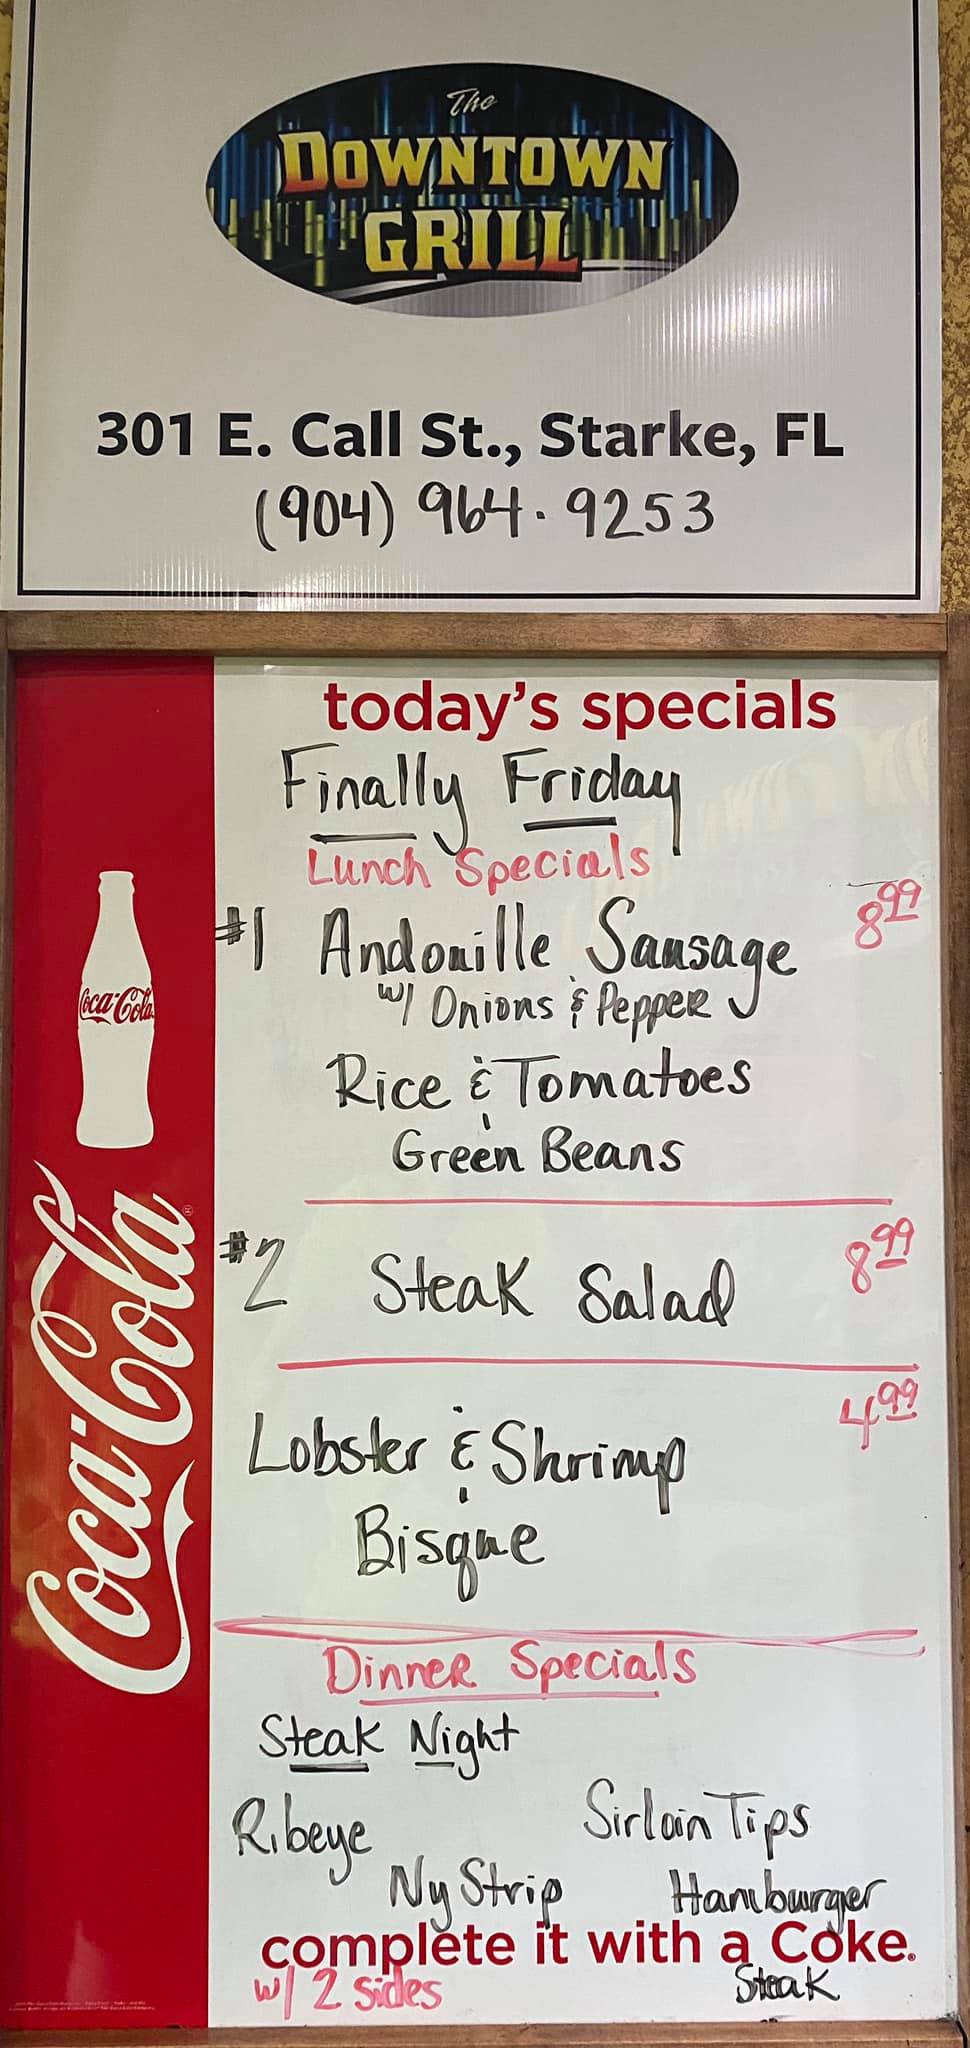 The
DOWNTOWN
GRILL
301 E. Call St., Starke, FL
(904) 964-9253
today's specials
Finally Friday
Lunch Specials
#1 Andouille Sausage 8.99
w/ Onions & Pepper
Rice & Tomatoes
Green Beans
#2 Steak Salad 8.99
Lobster & Shrimp 4.99
Bisque
Dinner Specials
Steak Night
Ribeye
Sirloin Tips
Ny Strip
Hamburger
Steak
complete it with a Coke.
w/ 2 sides
Coca-Cola
Coca-Cola